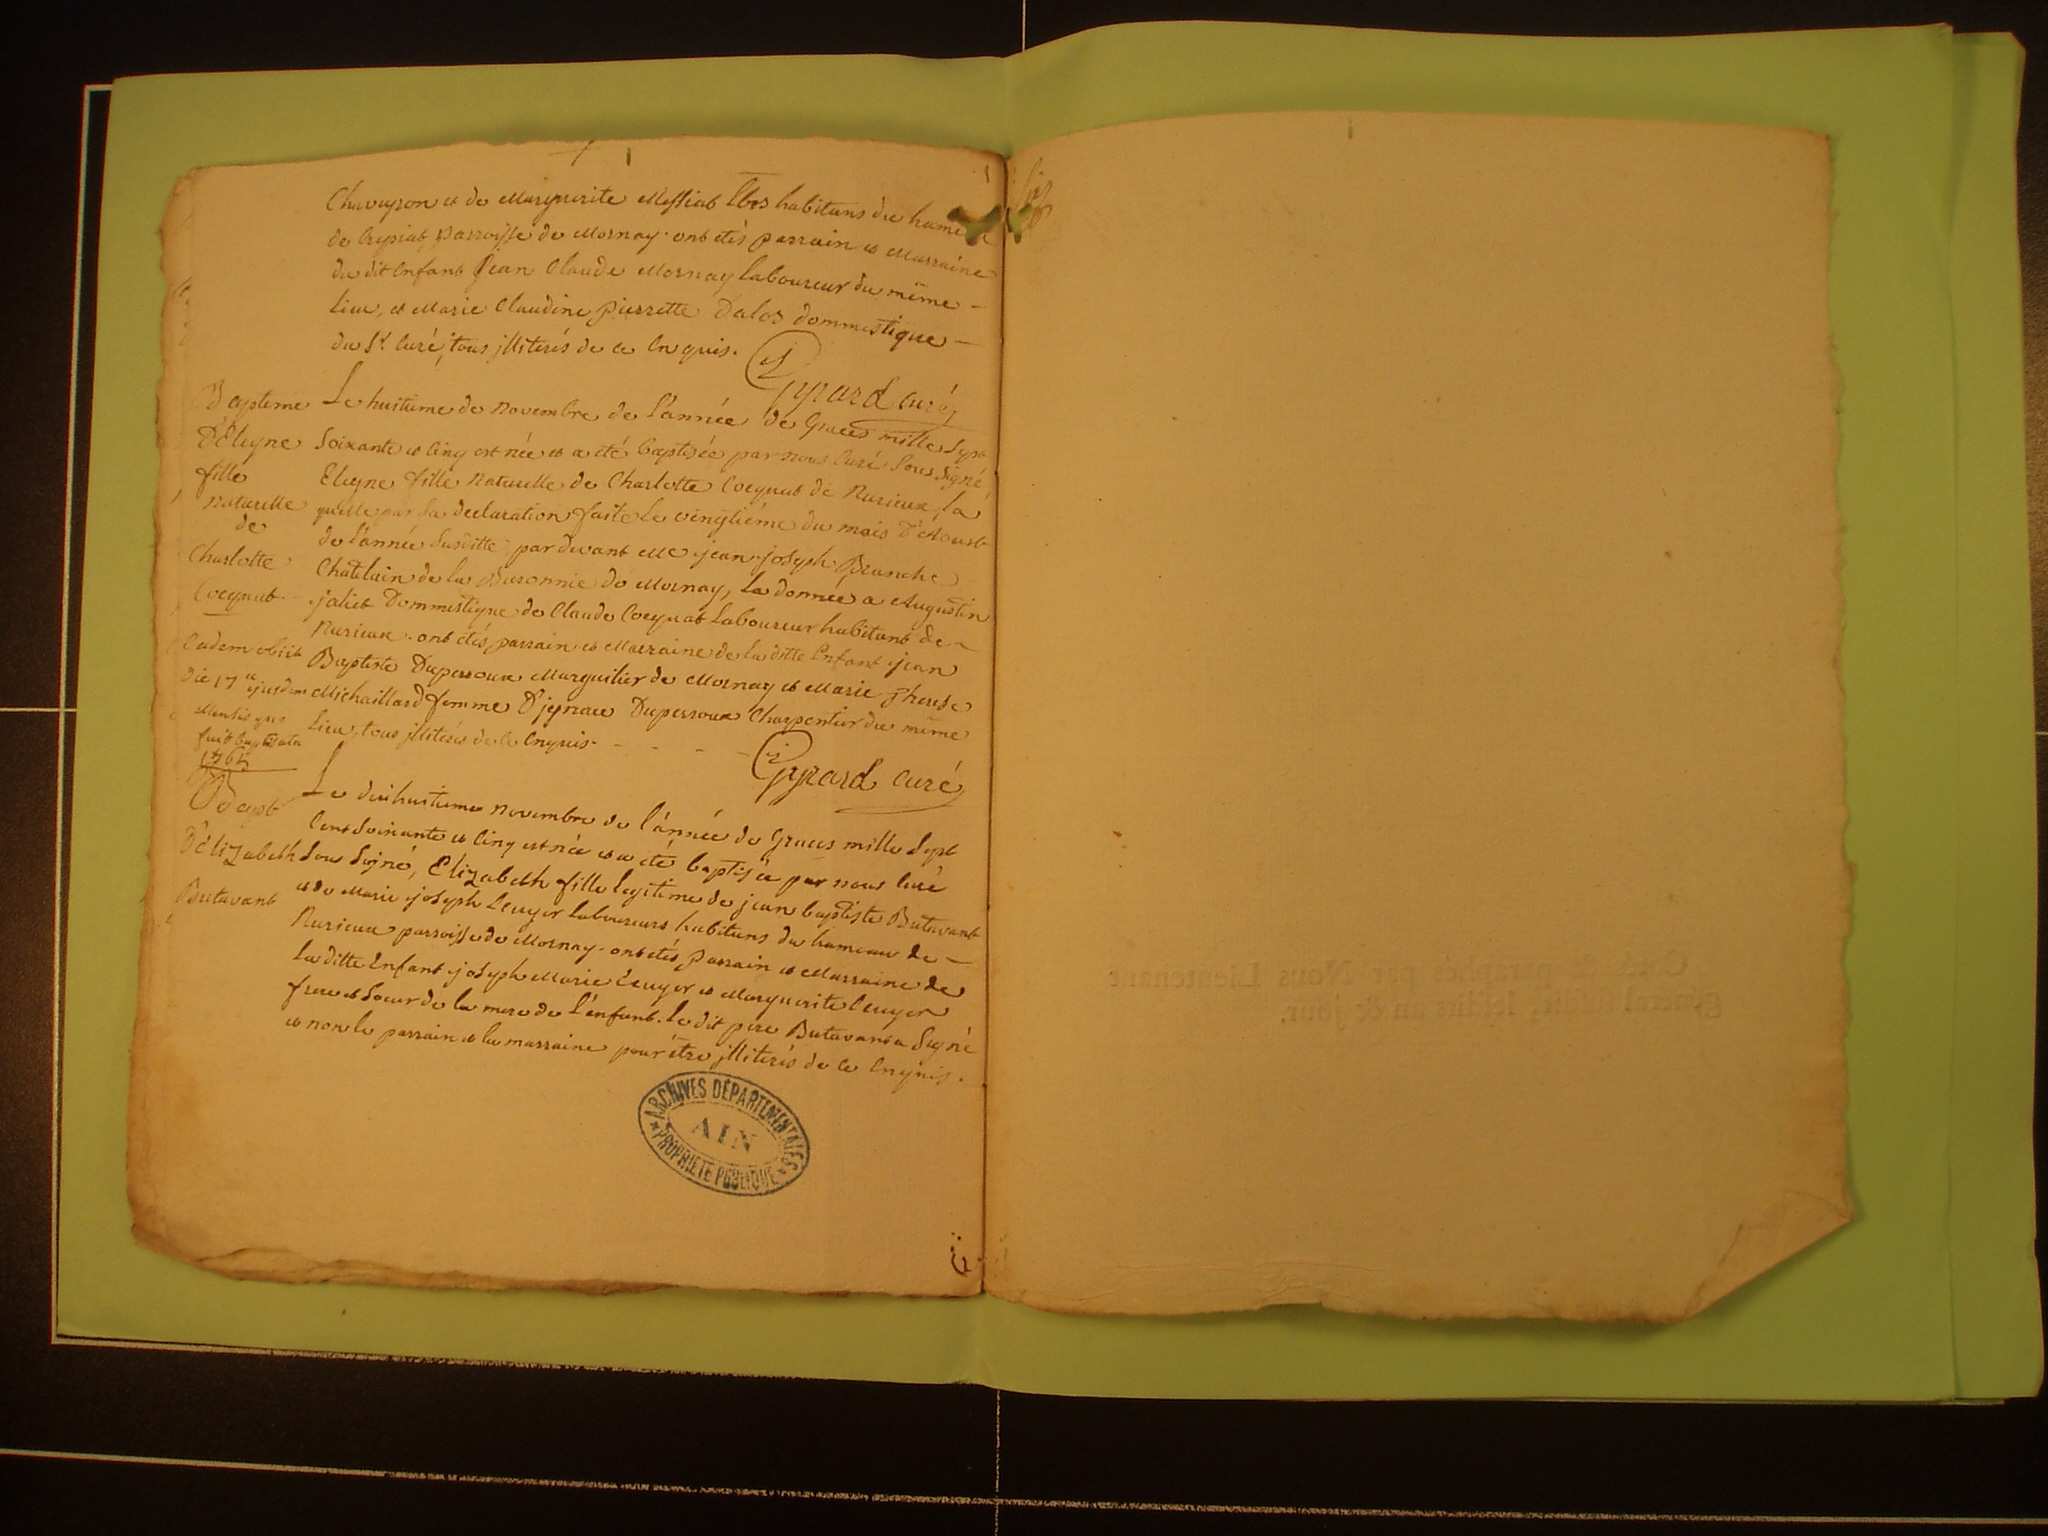 Chavagron et de Marguerite Messiat tous habitans du hameau
de Crepiat parroisse de Mornay. ont etés parrain et Marraine
du dit Enfant Jean Claude Mornay laboureur du même
lieu, et Marie Claudine pierrette Dalos dommestique
du Sr. Curé, tous jlliterés de ce Enquis.
Gyrard curé
Bapteme
D'Eleyne
fille
naturelle
de
Charlotte
Cocquat
Eadem obiit
die 17a ejusdem
Mensis quo
fuit baptisata
1765
Le huitieme de novembre de l'année de Graces mille Sept
Soixante et Cinq est née et a été baptisée par nous Curé Sous Signé
Eleyne fille naturelle de Charlotte Cocquat de Nurieux, la
quelle par sa declaration faite le vingtiéme du mois D'Aoust
de l'année Susditte, par devant Me jean joseph Branche
Chatelain de la Baronnie de Mornay, la donnée a Augustin
jaliet Dommestique de Claude Cocquat Laboureur habitant de
Nurieux. ont étés parrain et Marraine de la ditte Enfant jean
Baptiste Duperroux Marguilier de Mornay et Marie therese
Michaillard femme D'jgnace Duperroux Charpentier du même
Lieu, tous jlliterés de ce Enquis.
Gyrard curé
Bapt
D'élizabeth
Butavant
Le dixhuitieme novembre de l'année de Graces mille Sept
Cent Soixante et Cinq est née et a été baptisée par nous Curé
Sous Signé, Elizabeth fille legitime de jean baptiste Butavant
et de Marie joseph Leuyer laboureurs habitans du hameau de
Nurieux parroisse de Mornay. ont etés parrain et Marraine de
la ditte Enfant joseph Marie Leuyer et Marguerite Leuyer
frere et Soeur de la mere de l'enfant. le dit pere Butavant a Signé
et non le parrain et la marraine pour être jlliterés de ce Enquis.
ARCHIVES DÉPARTEMENTALES
AIN
PROPRIETE PUBLIQUE
Cottés & paraphés par Nous Lieutenant
général susdit, lesdits an & jour.